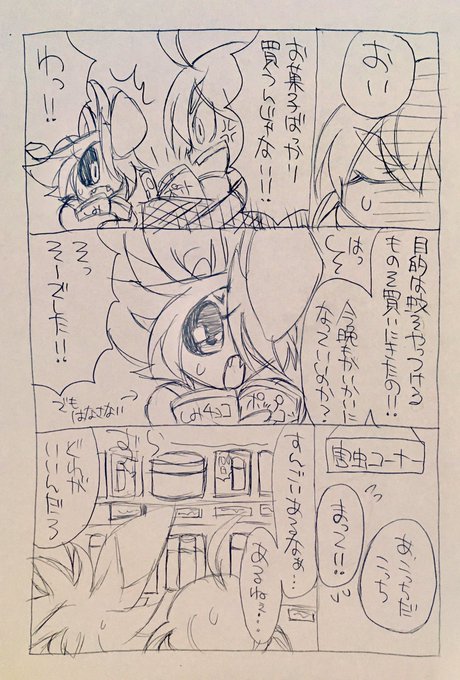 おい
お菓子ばっかり
買うんじゃない!!
わっ!!
目的は蚊をやっつける
ものを買いにきたの!!
はっ
今晩もかいかいに
なっていいのか?
そっ
そーでした!!
でもはなさない→
しみチョコ
ポップコ
害虫コーナー
あこっちだ
こっち
まって!!
すんごいあるなぁ…
あるねぇ…
どれが
いいんだろ